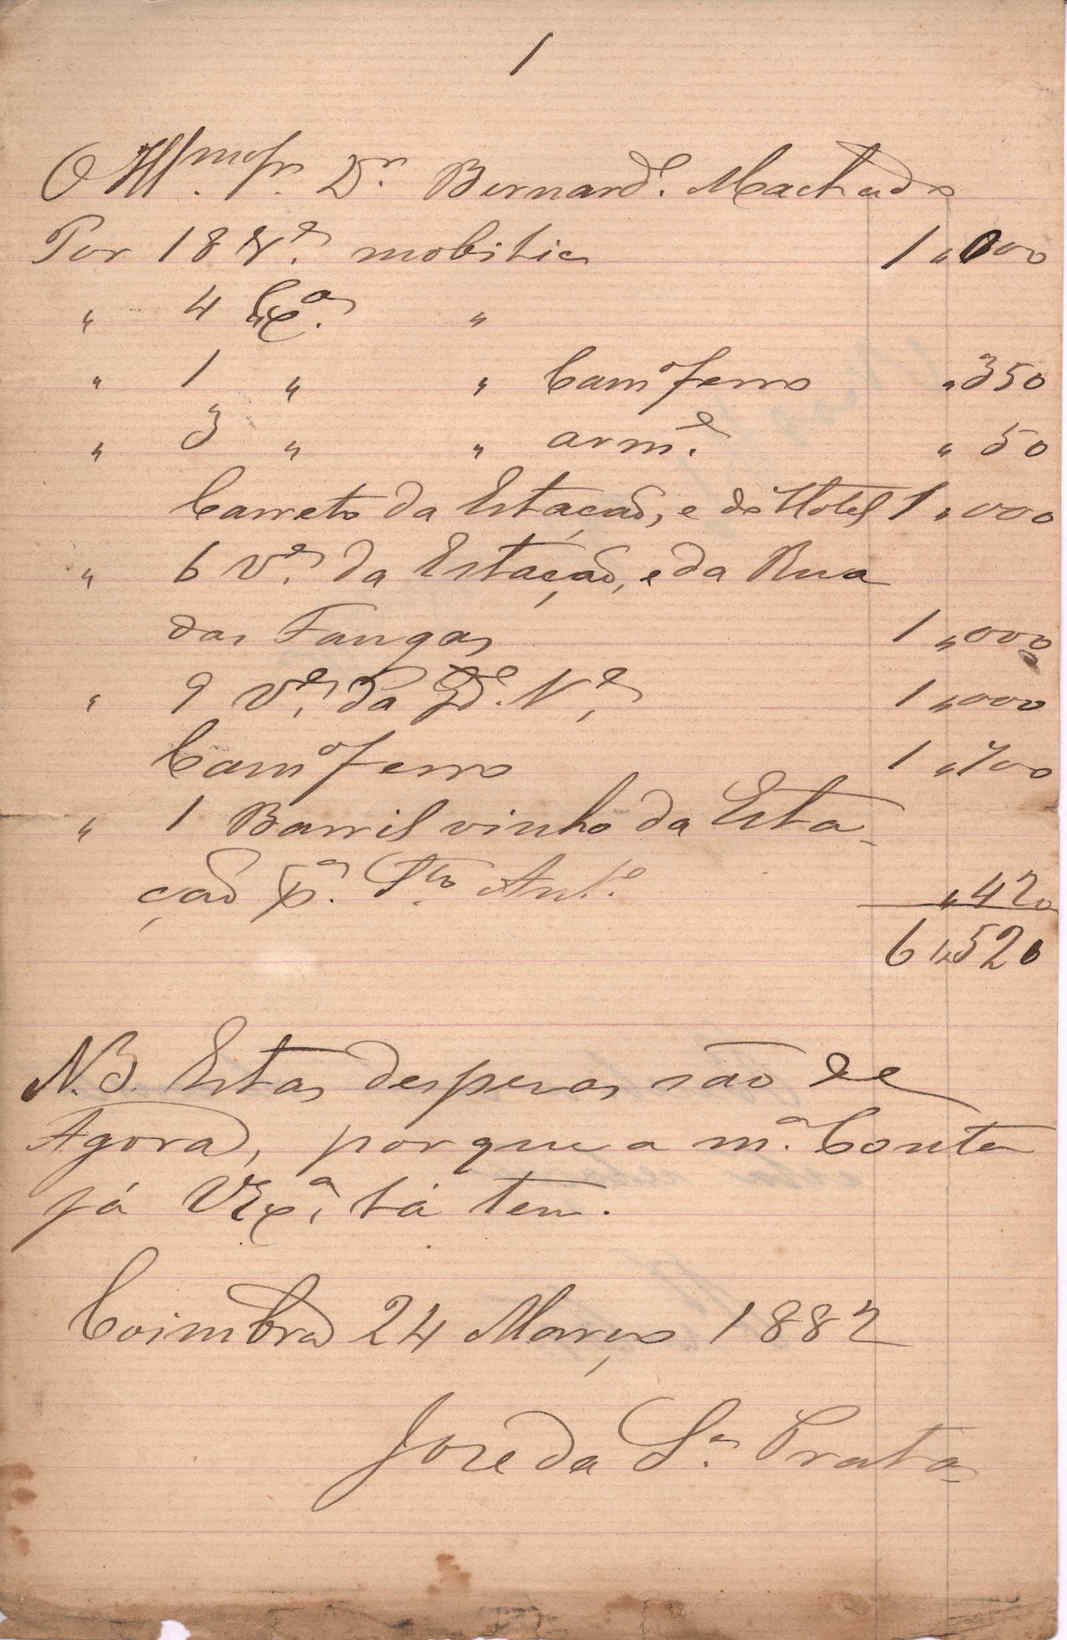 1
O Illmo Sr. Dr. Bernardo. Machado
Por 18 Ves. mobilia 1„000
„ 4 Cxas. „
„ 1 „ „ Camo ferro „350
„ 3 „ „ arme. „50
Carreto da Estação, e do Hotel 1„000
„ 6 Ves. da Estação, e da Rua
das Fangas 1„000
„ 9 Ves. da Gde. Ne. 1„000
Camo ferro 1„700
„ 1 Barril vinho da Esta-
ção pa. Sto Anto. „420
6„520
N.B. Estas despezas são de
Agora, porque a ma. Conta
já VExa. lá tem.
Coimbra 24 Março 1882
José da Sa. Prata